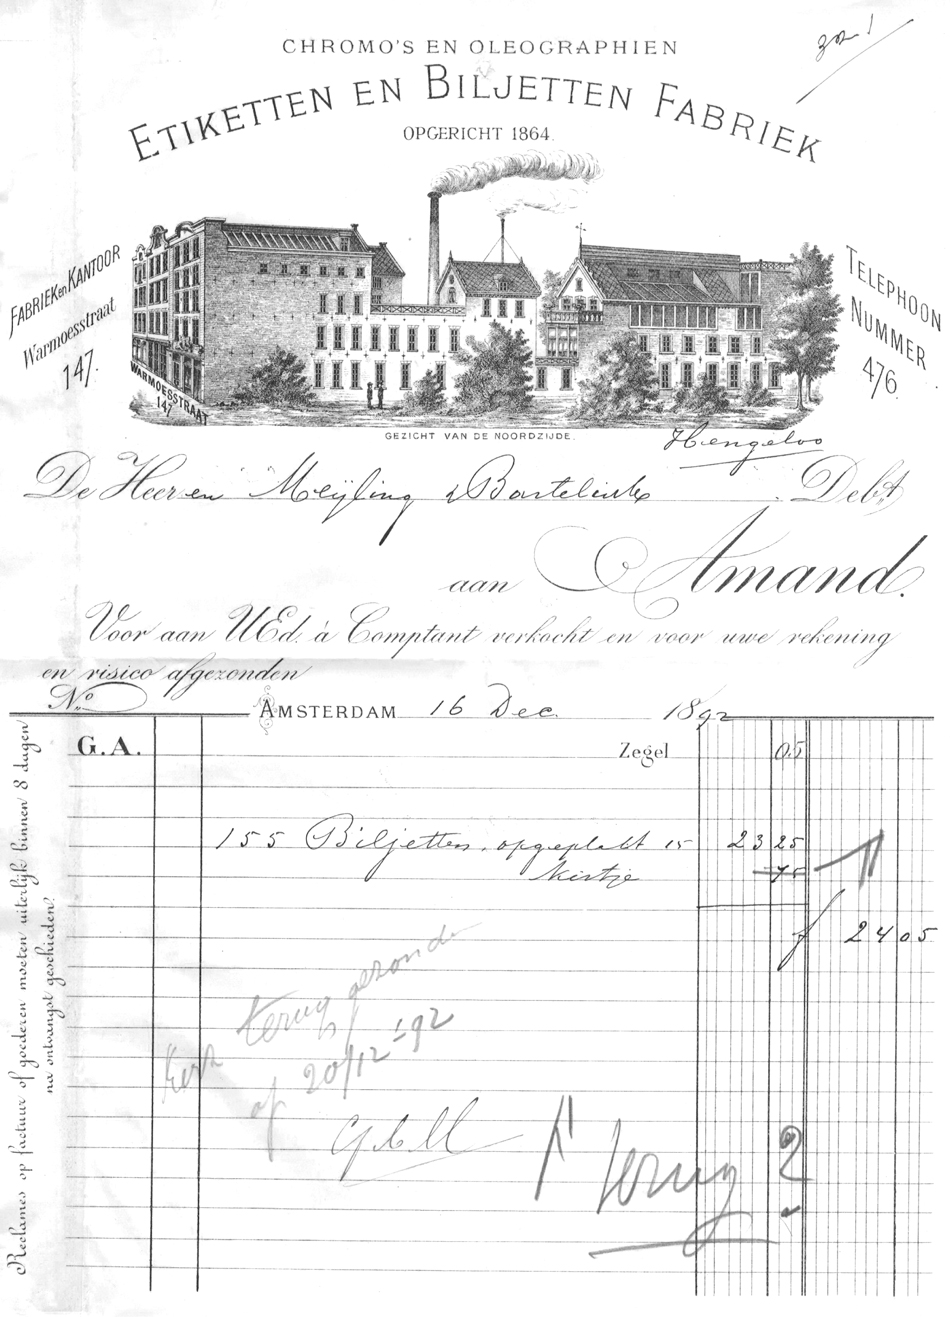 zon !
CHROMO'S EN OLEOGRAPHIEN
ETIKETTEN EN BILJETTEN FABRIEK
OPGERICHT 1864.
FABRIEK en KANTOOR
Warmoesstraat
147.
TELEPHOON
NUMMER
476.
WARMOESSTRAAT
147
GEZICHT VAN DE NOORDZIJDE.
Hengeloo
De Heeren Meyling & Bartelink Debt
aan Amand.
Voor aan UEd. à Comptant verkocht en voor uwe rekening
en risico afgezonden
No.
AMSTERDAM 16 Dec. 1892
G.A. Zegel 05
155 Biljetten, opgeplakt 15 23 25
kistje 75
f 24 05
Kist terug gezonden
op 20/12-92
terug ?
Reclames op factuur of goederen moeten uiterlijk binnen 8 dagen
na ontvangst geschieden.